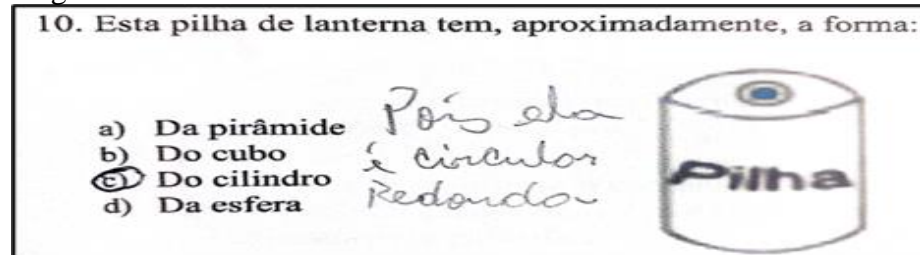 10. Esta pilha de lanterna tem, aproximadamente, a forma:
a) Da pirâmide
b) Do cubo
c) Do cilindro
d) Da esfera
Pois ela
é circular
Redonda
Pilha